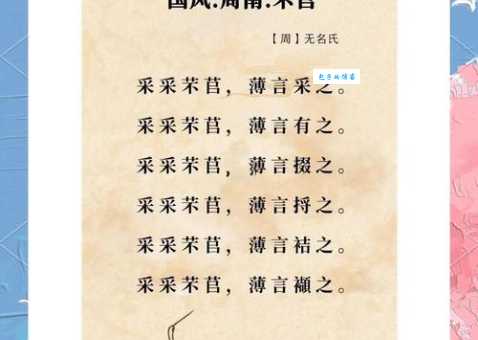 国风·周南·芣苢
【周】无名氏
采采芣苢，薄言采之。
采采芣苢，薄言有之。
采采芣苢，薄言掇之。
采采芣苢，薄言捋之。
采采芣苢，薄言袺之。
采采芣苢，薄言襭之。